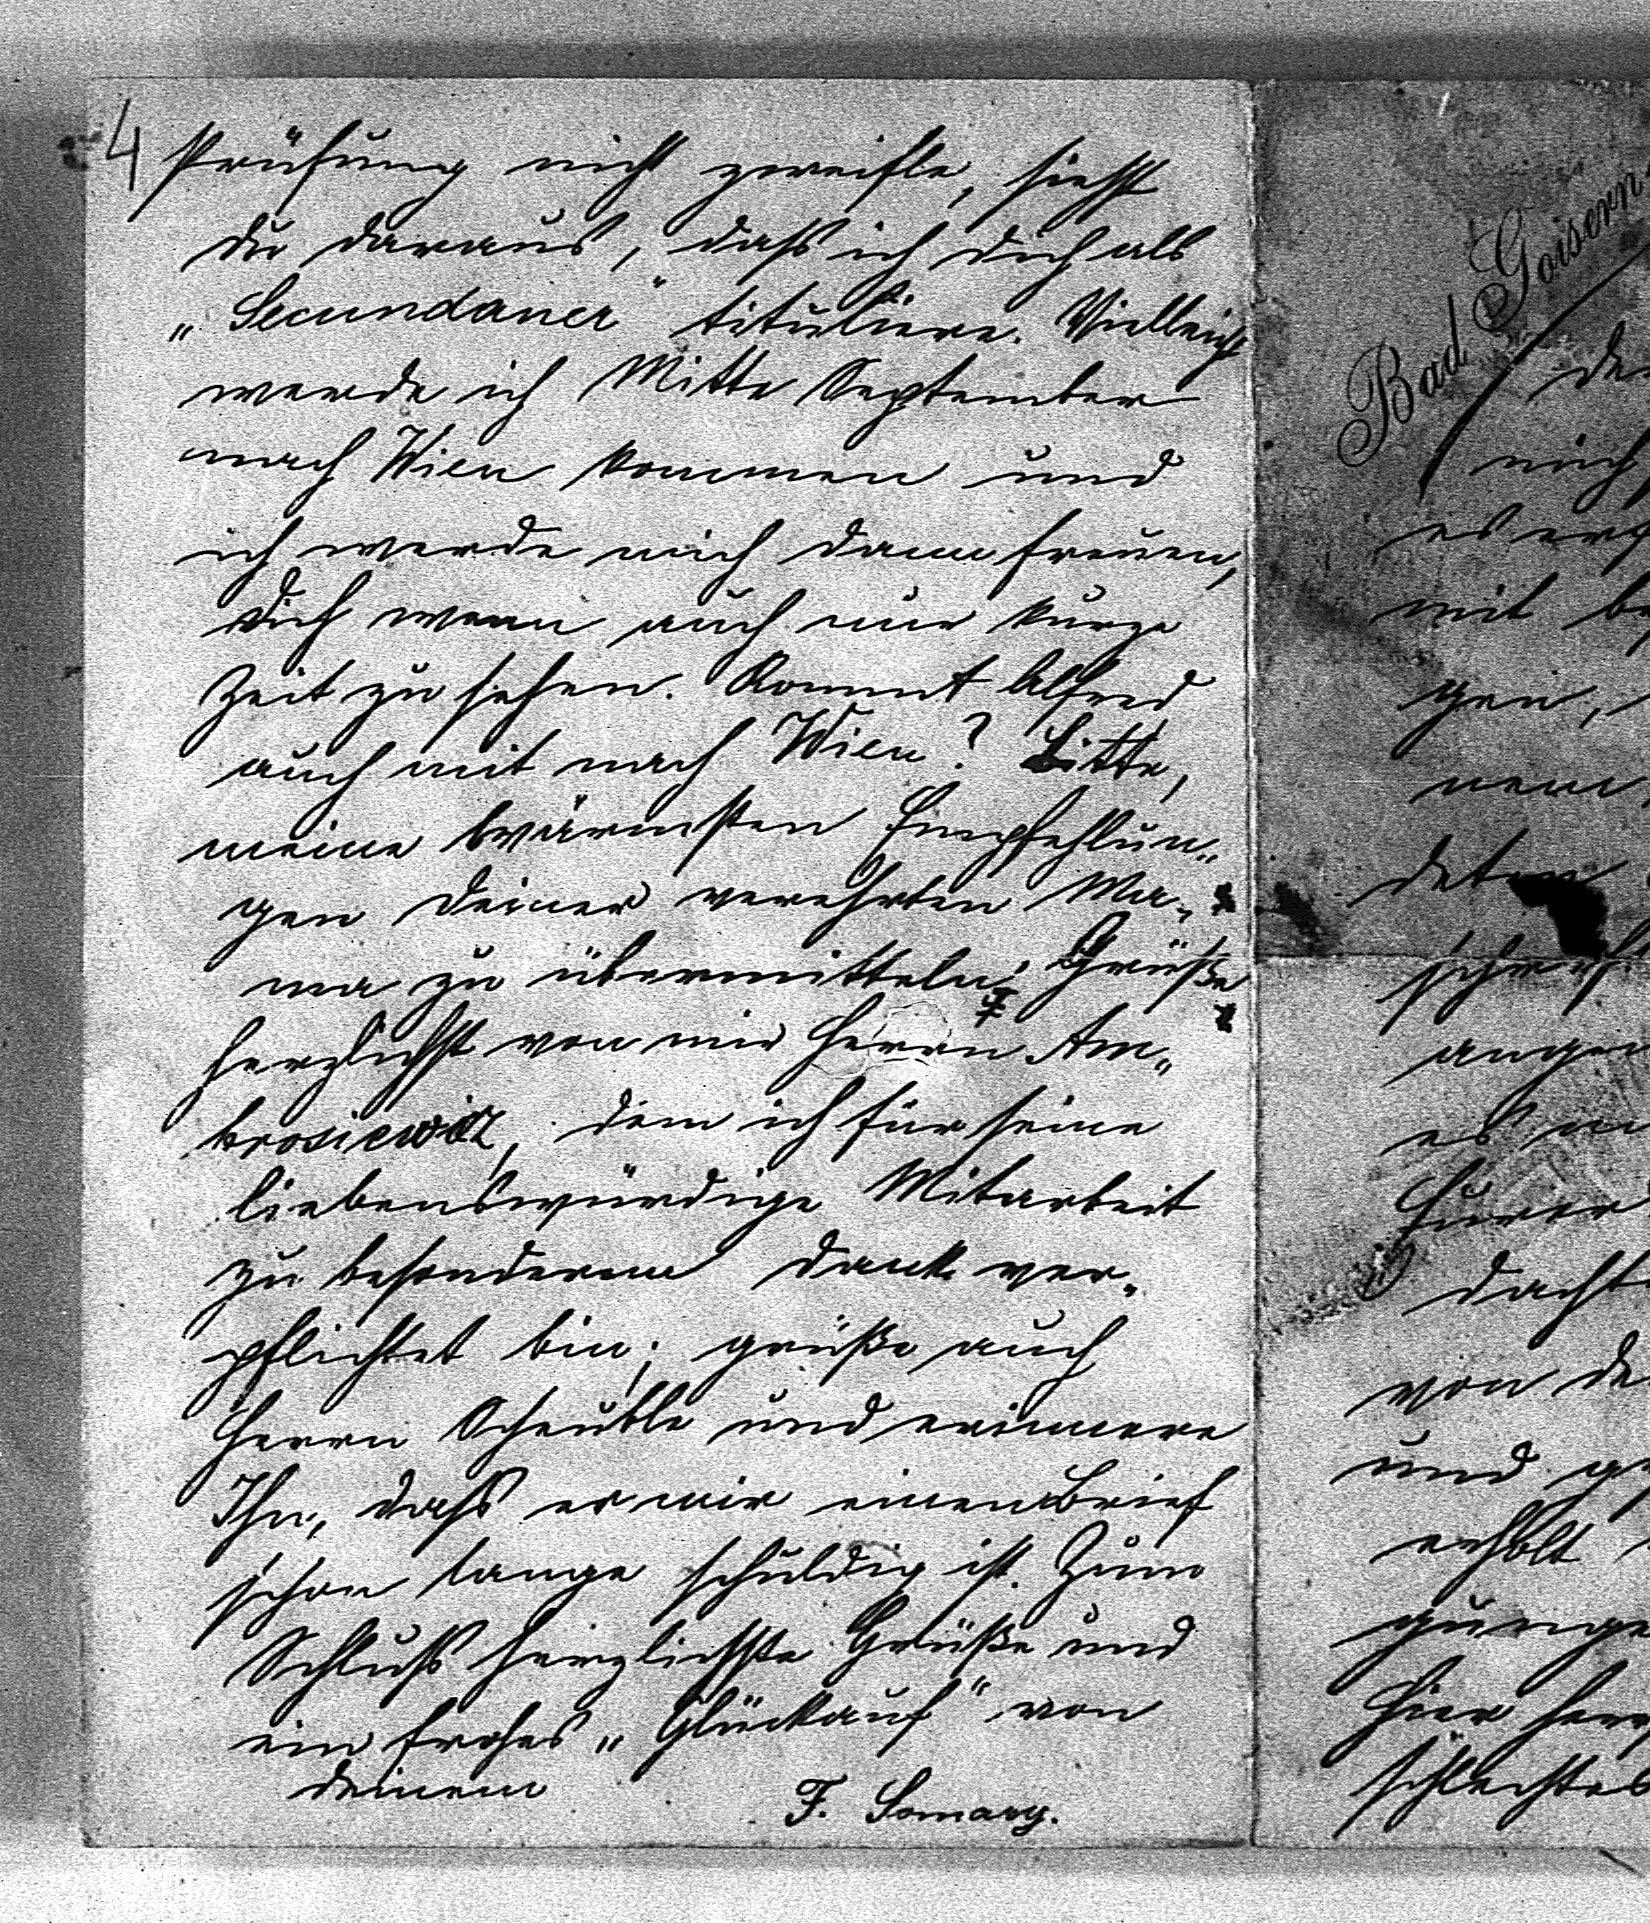 4 Prüfung nicht zweifle, siehst
du daraus, daß ich dich als
„Secundaner“ tituliere. Vielleicht
werde ich Mitte September
nach Wien kommen und
ich werde mich dann freuen,
dich wenn auch nur kurze
Zeit zu sehen. Kommt Alfred
auch mit nach Wien? Bitte,
meine wärmsten Empfehlun„
gen deiner verehrten Ma„
ma zu übermitteln; Grüße
herzlichst von mir Herrn Am„
brosiewicz, dem ich für seine
liebenswürdige Mitarbeit
zu besonderem Dank ver„
pflichtet bin; grüße auch
Herrn Scheuble und erinnere
Ihn, daß er mir einen Brief
schon lange schuldig ist. Zum
Schluß herzlichste Grüße und
ein frohes „Glückauf“ von
deinem
F. Somary.
Bad Goisern,
mich
mit
gen,
Eurer
dacht
von
und
erholt
Hier
schlechtes